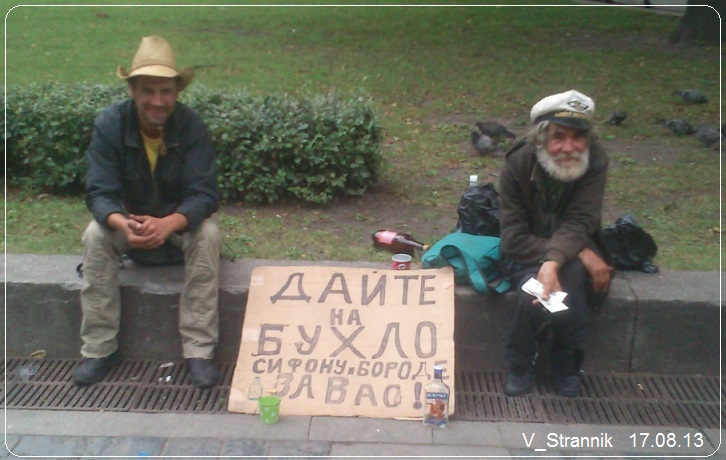 ДАЙТЕ
НА
БУХЛО
СИФОНУ И БОРОДЕ
ЗА ВАС!
V_Strannik 17.08.13